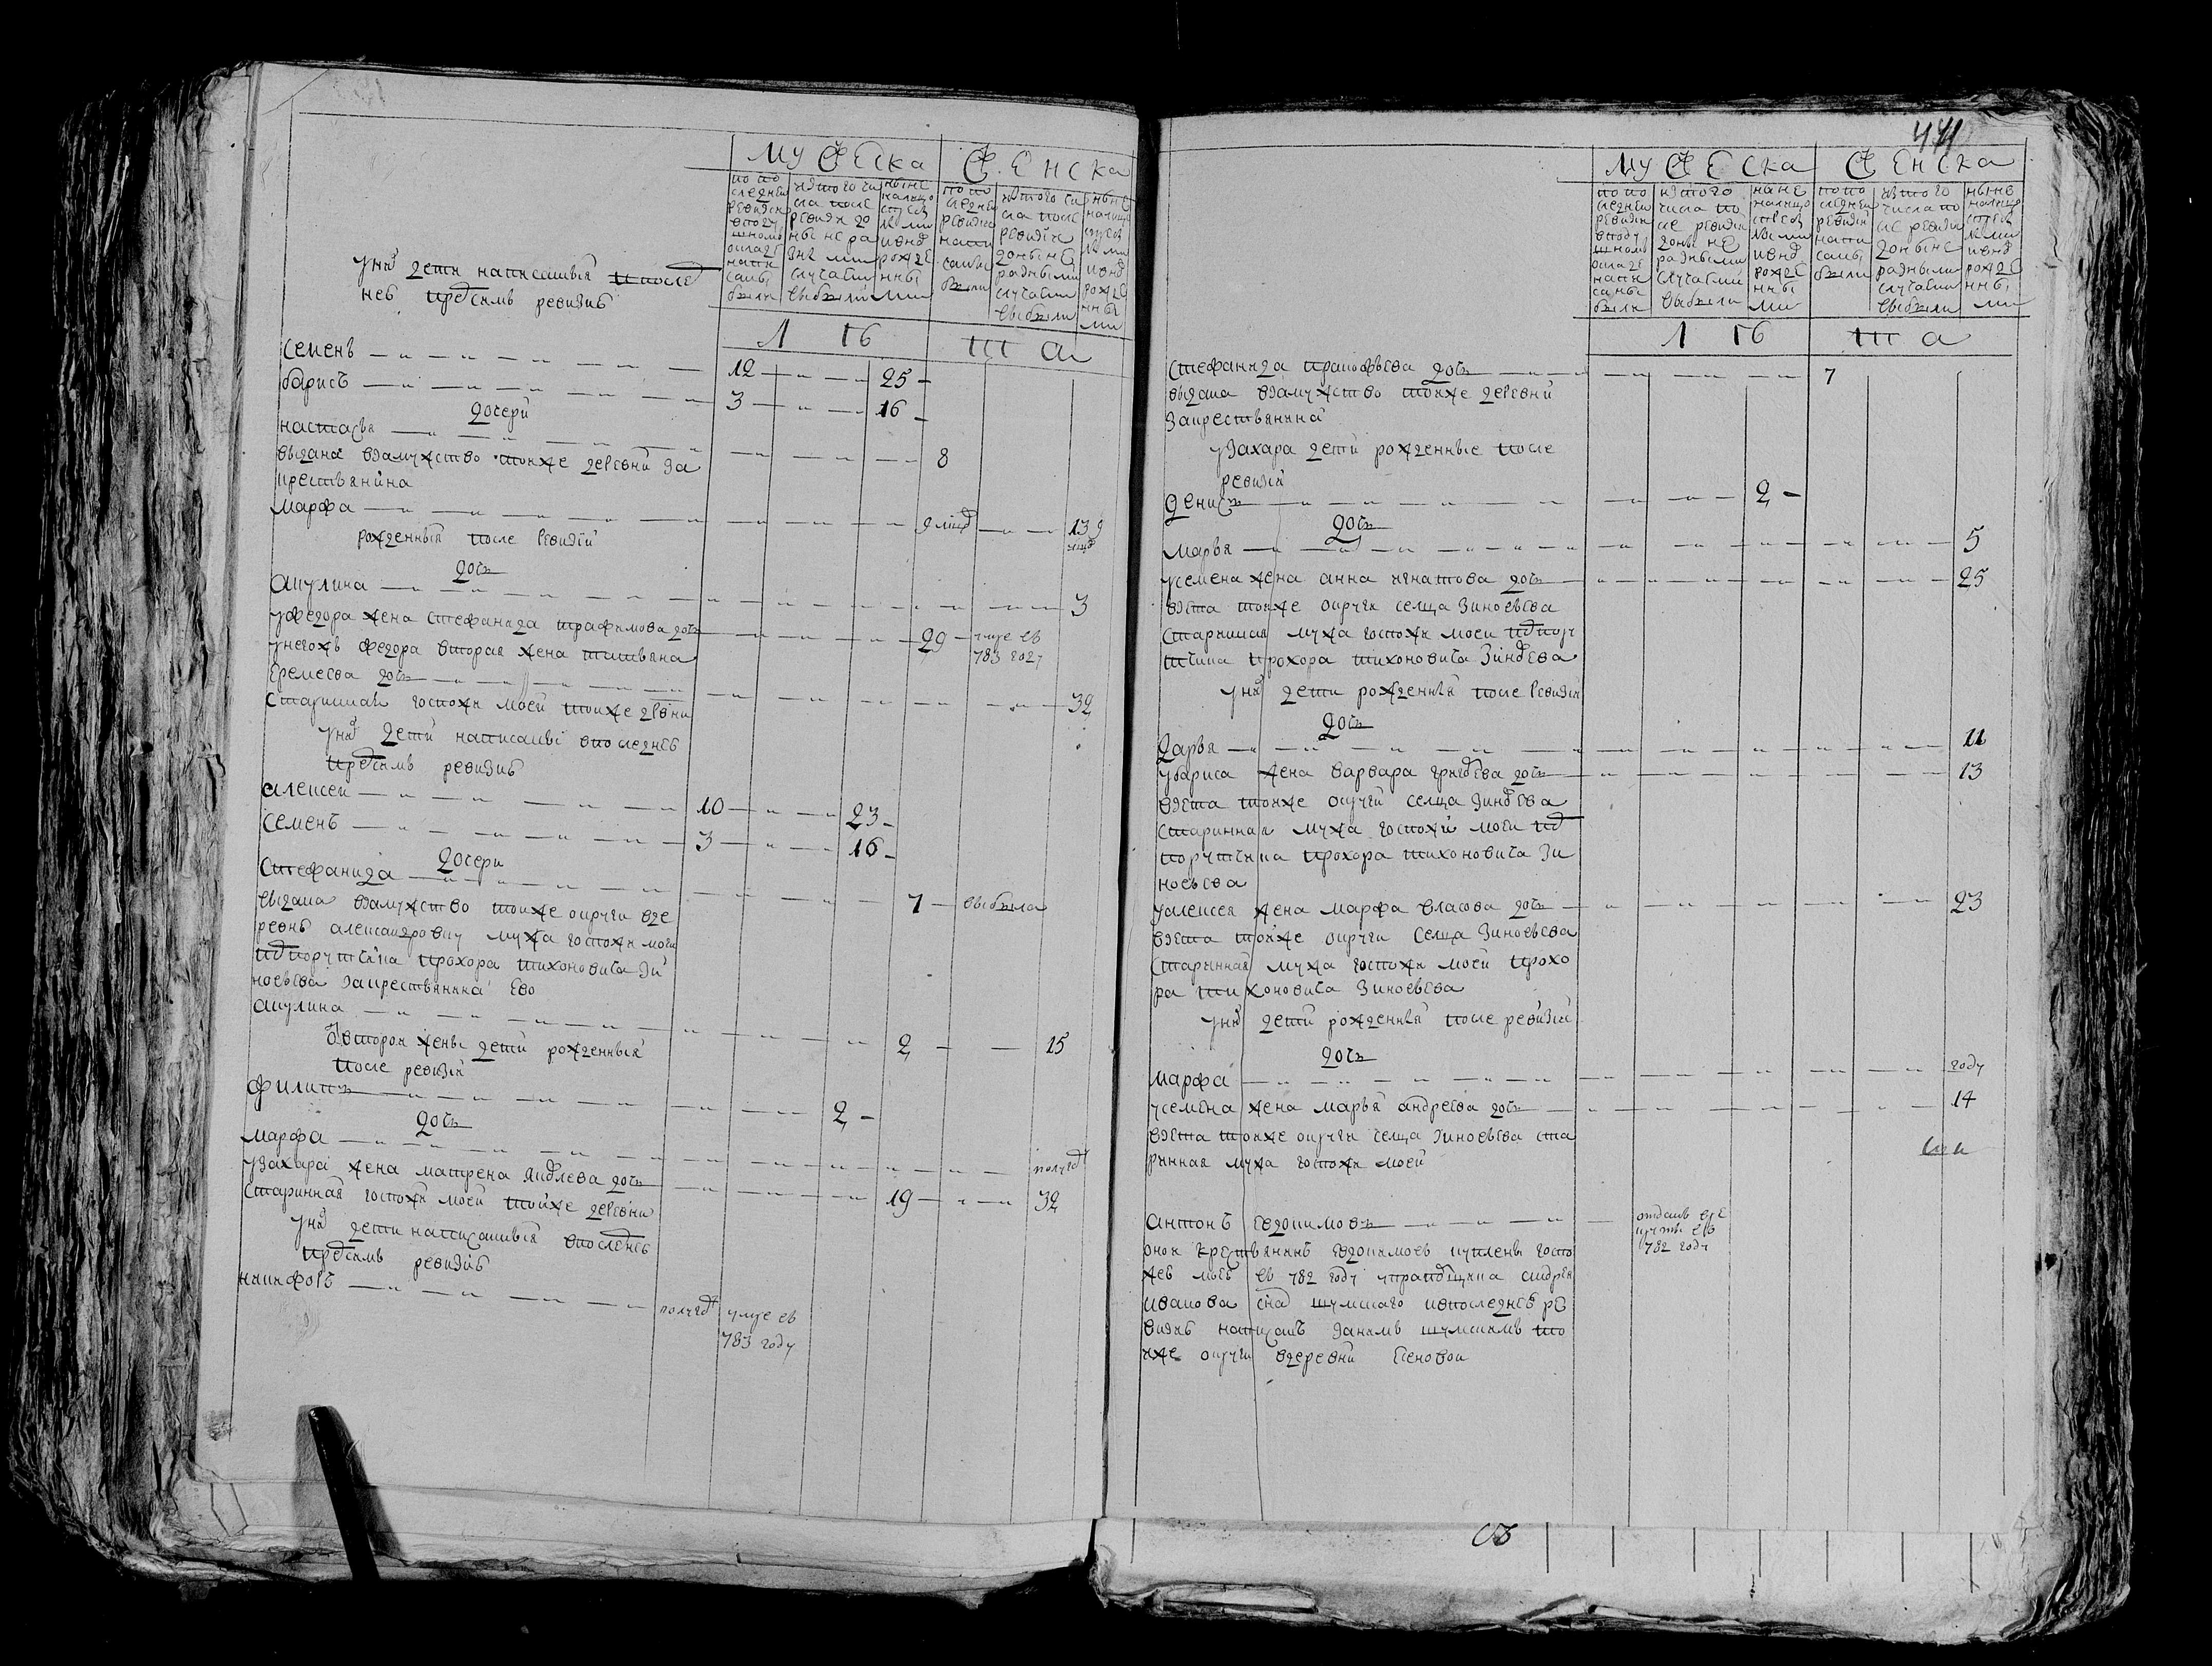 мужеска женска
по по
следней
ревизии
в поду
шномъ
окладе
напи
саны
были
ис того чи
сла после
ревизи до
ныне ра
зными
случаями
выбыли
ныне
налицо
с прибы
лыми
и внов
рожде
нны
ми
по по
следней
ревизи
напи
саны
были
ис того чи
сла после
ревизи
доныне
разными
случаями
выбыли
ныне
налицо
лыми
и внов
рожде
нны
ми
лѣ та
у них дети написанныя в послед
нев пред симъ ревизиѣ
семенъ 12 25
борисъ 3 16
дочери
настасья 8
выдана взамужство тойже деревни за
крестьянина
марфа 13
рожденныя после ревизии
дочь
акулина 3
уфедора жена стефанида трафимова дочь 29 умре въ
783 году
унегожъ федора вторая жена татьяна
еремеева дочь
старинная госпожи моей тойже дервни 32
у них дети написанны в последнев
пред симъ ревизиѣ
алексей 10 23
семенъ 3 16
дочери
стефанида 7 выбыла
выдана взамужство тойже округи в де
ревнѣ александровку мужа госпожи моей
подпорутчика прохора тихоновича зи
новьева за крестьянина ево
акулина 2 15
от второй жены дети рожденныя
после ревизии
филипъ 2
дочь
марфа полугод
узахара жена матрена яковлева дочь
старинная госпожи моей тойже деревни 19 32
у них дети написанныя в последнев
пред симъ ревизиѣ
никифоръ полугод умре въ
783 году
441
мужеска женска
по по
следней
ревизи
в поду
шномъ
окладе
напи
саны
были
ис того
числа по
сле ревизи
доны не
разными
случаями
выбыли
налицо
с прибы
лыми
и внов
рожде
нны
ми
по по
следней
ревизи
напи
саны
были
ис того
числа по
сле ревизи
доныне
разными
случаями
выбыли
ныне
налицо
лыми
и внов
рожде
нны
ми
лѣ та
стефанида прокофьева дочь 7
выдана взамужство тойже деревни
за крестьянина
узахара дети рожденные после
ревизии
денисъ 2
дочь
марья 5
усемена жена анна игнатова дочь 25
взета тойже округи селца зиновьева
старинная мужа госпожи моей подпору
тчика прохора тихоновича зиновьева
у них дети рожденныя после ревизии
дочь
дарья 11
убориса жена варвара григорьева дочь 13
взета тойже округи селца зиновьева
старинная мужа госпожи моей под
порутчика прохора тихоновича зи
новьева
уалексея жена марфа власова дочь 23
взета тойже округи селца зиновьева
старинная мужа госпожи моей прохо
ра тихоновича зиновьева
у них дети рожденныя после ревизии
дочь
марфа году
усемена жена марья андреева дочь 14
взета тойже округи селца зиновьева ста
ринная мужа госпожи моей
антонъ евдокимовъ отданъ в ре
круты въ
782 году
оной крестьянинъ евдокимовъ купленъ госпо
жев моев въ 782 году упрапорщика андрея
иванова сна шумскаго ивпоследнев ре
визиѣ написанъ занимъ шумскимъ то
йже округи вдеревни